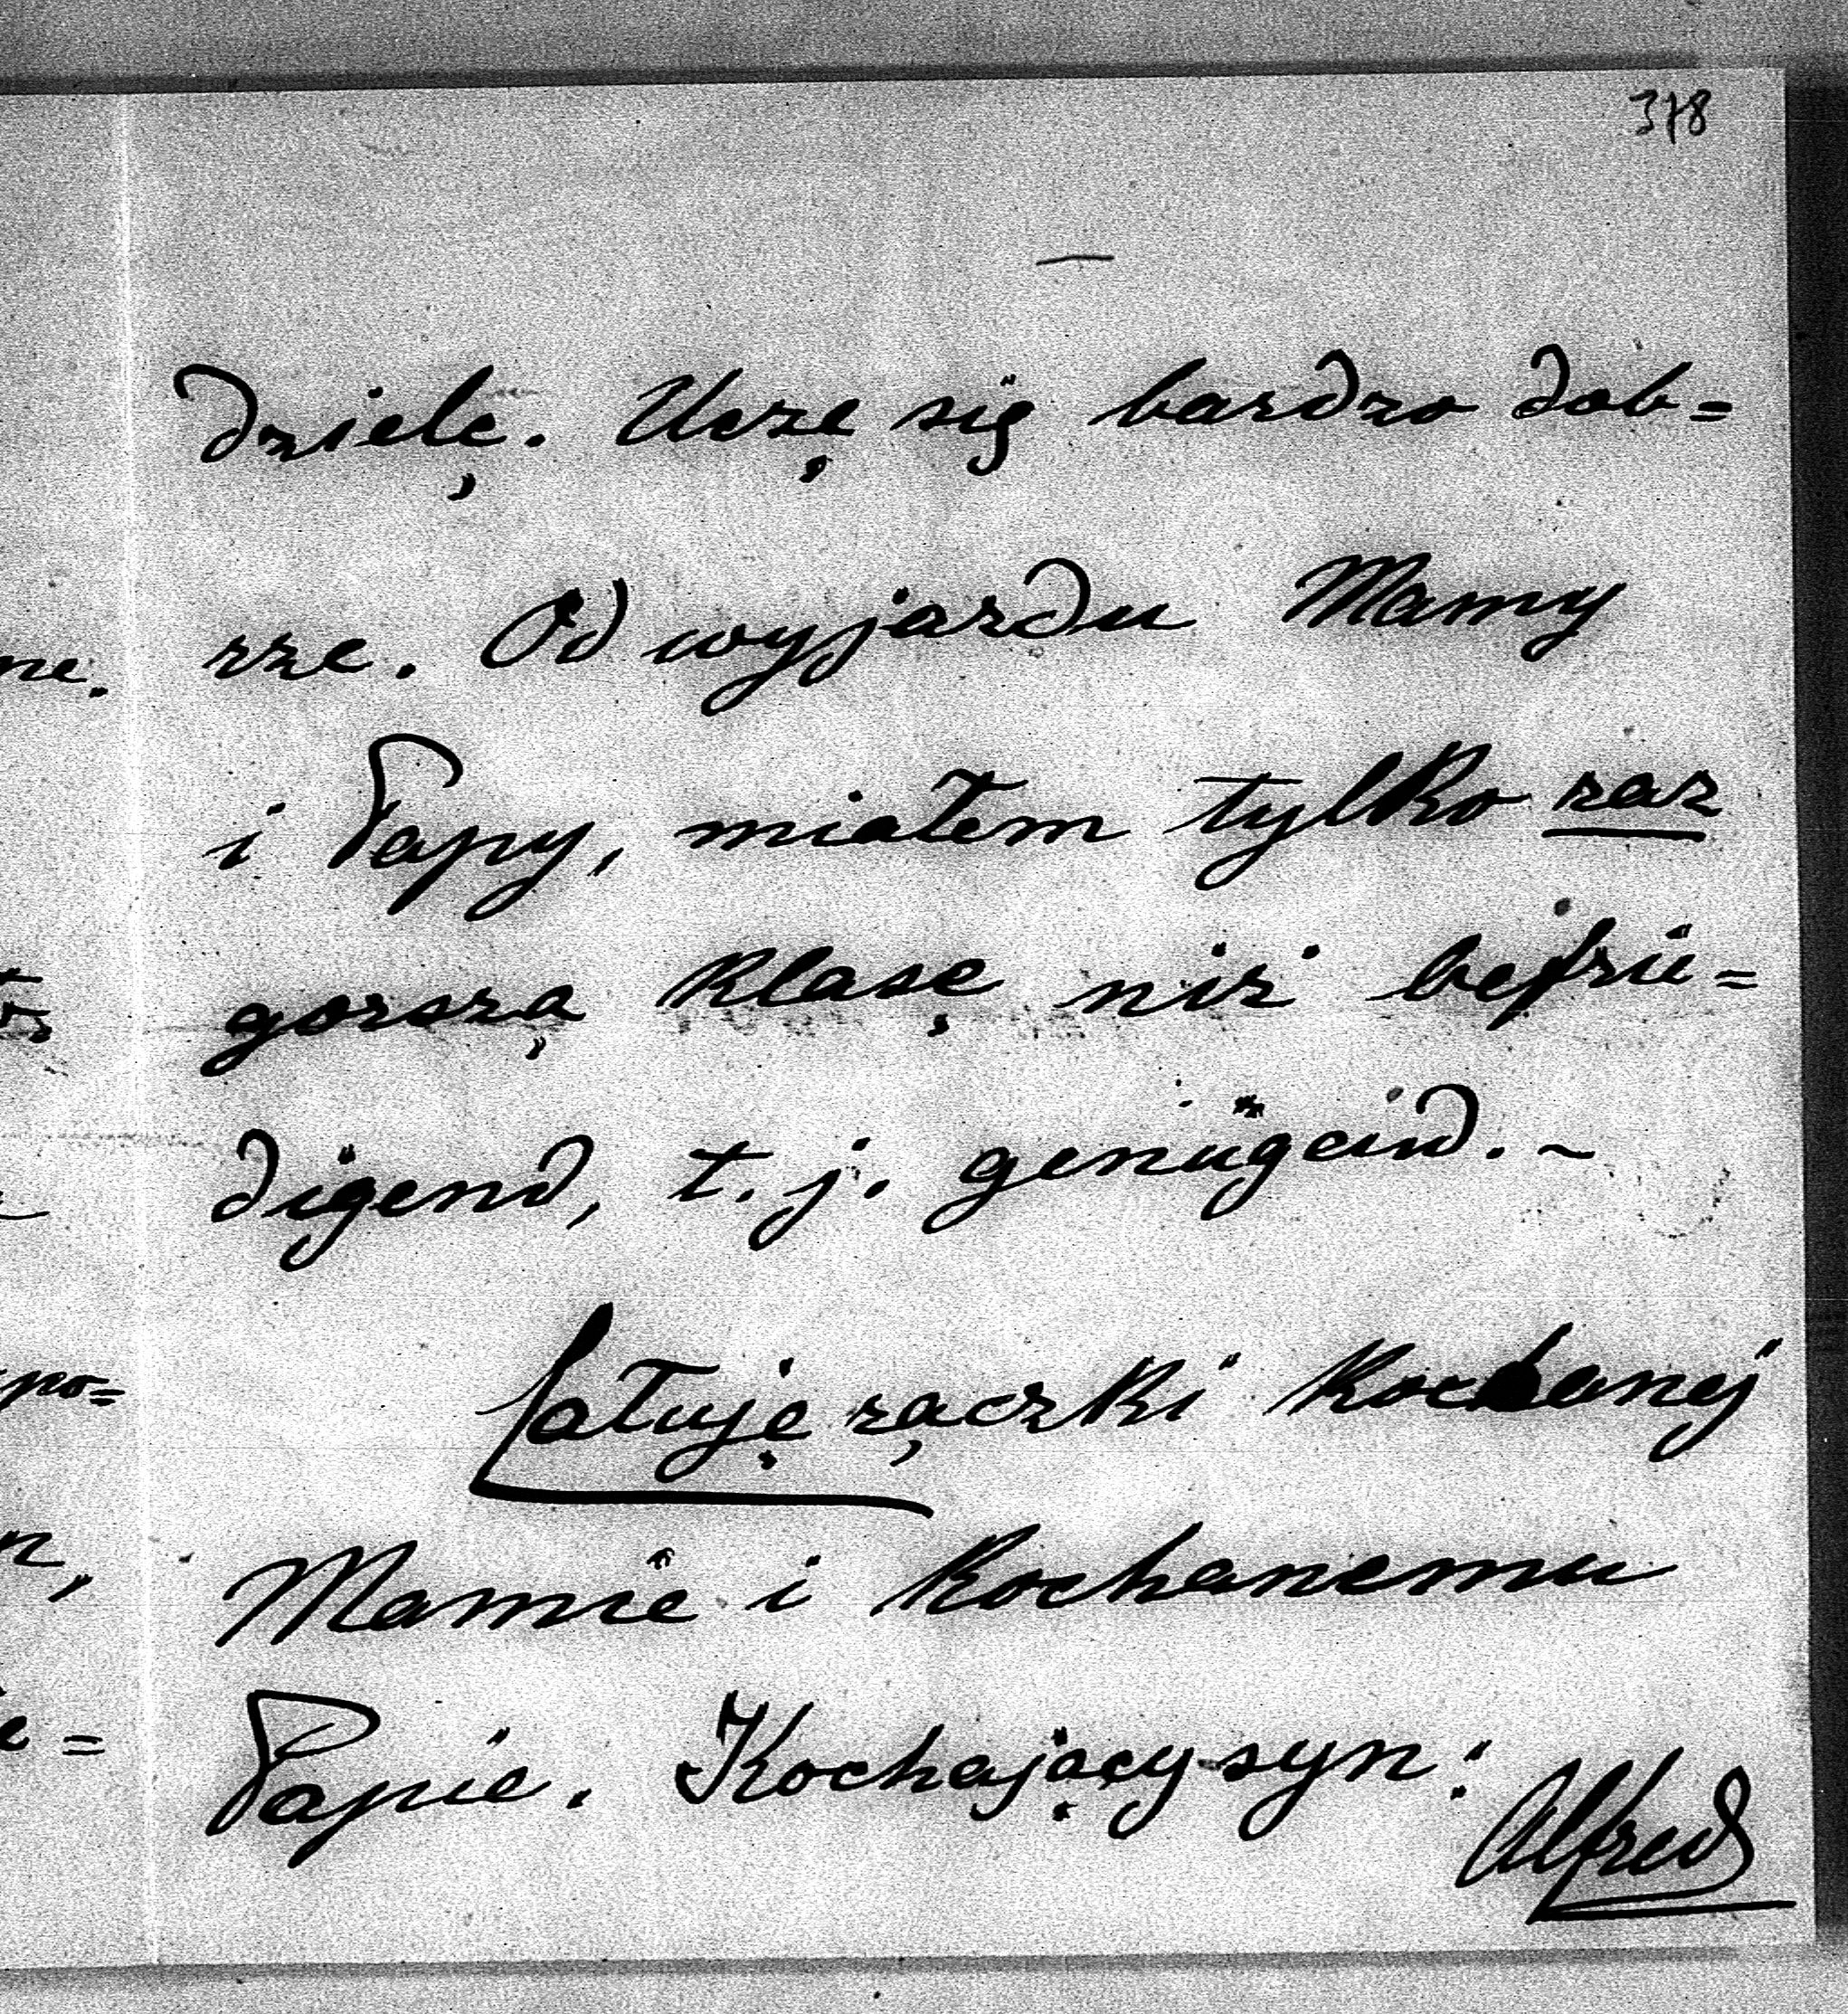 378
—
dzielę. Uczę się bardzo dob=
rze. Od wyjazdu Mamy
i Papy, miałem tylko raz
gorszą klasę niż befrie=
digend, t. j. genügend. ~
Całuję rączki kochanej
Mamie i kochanemu
Papie. Kochający syn:
Alfred
ne.
po=
n,